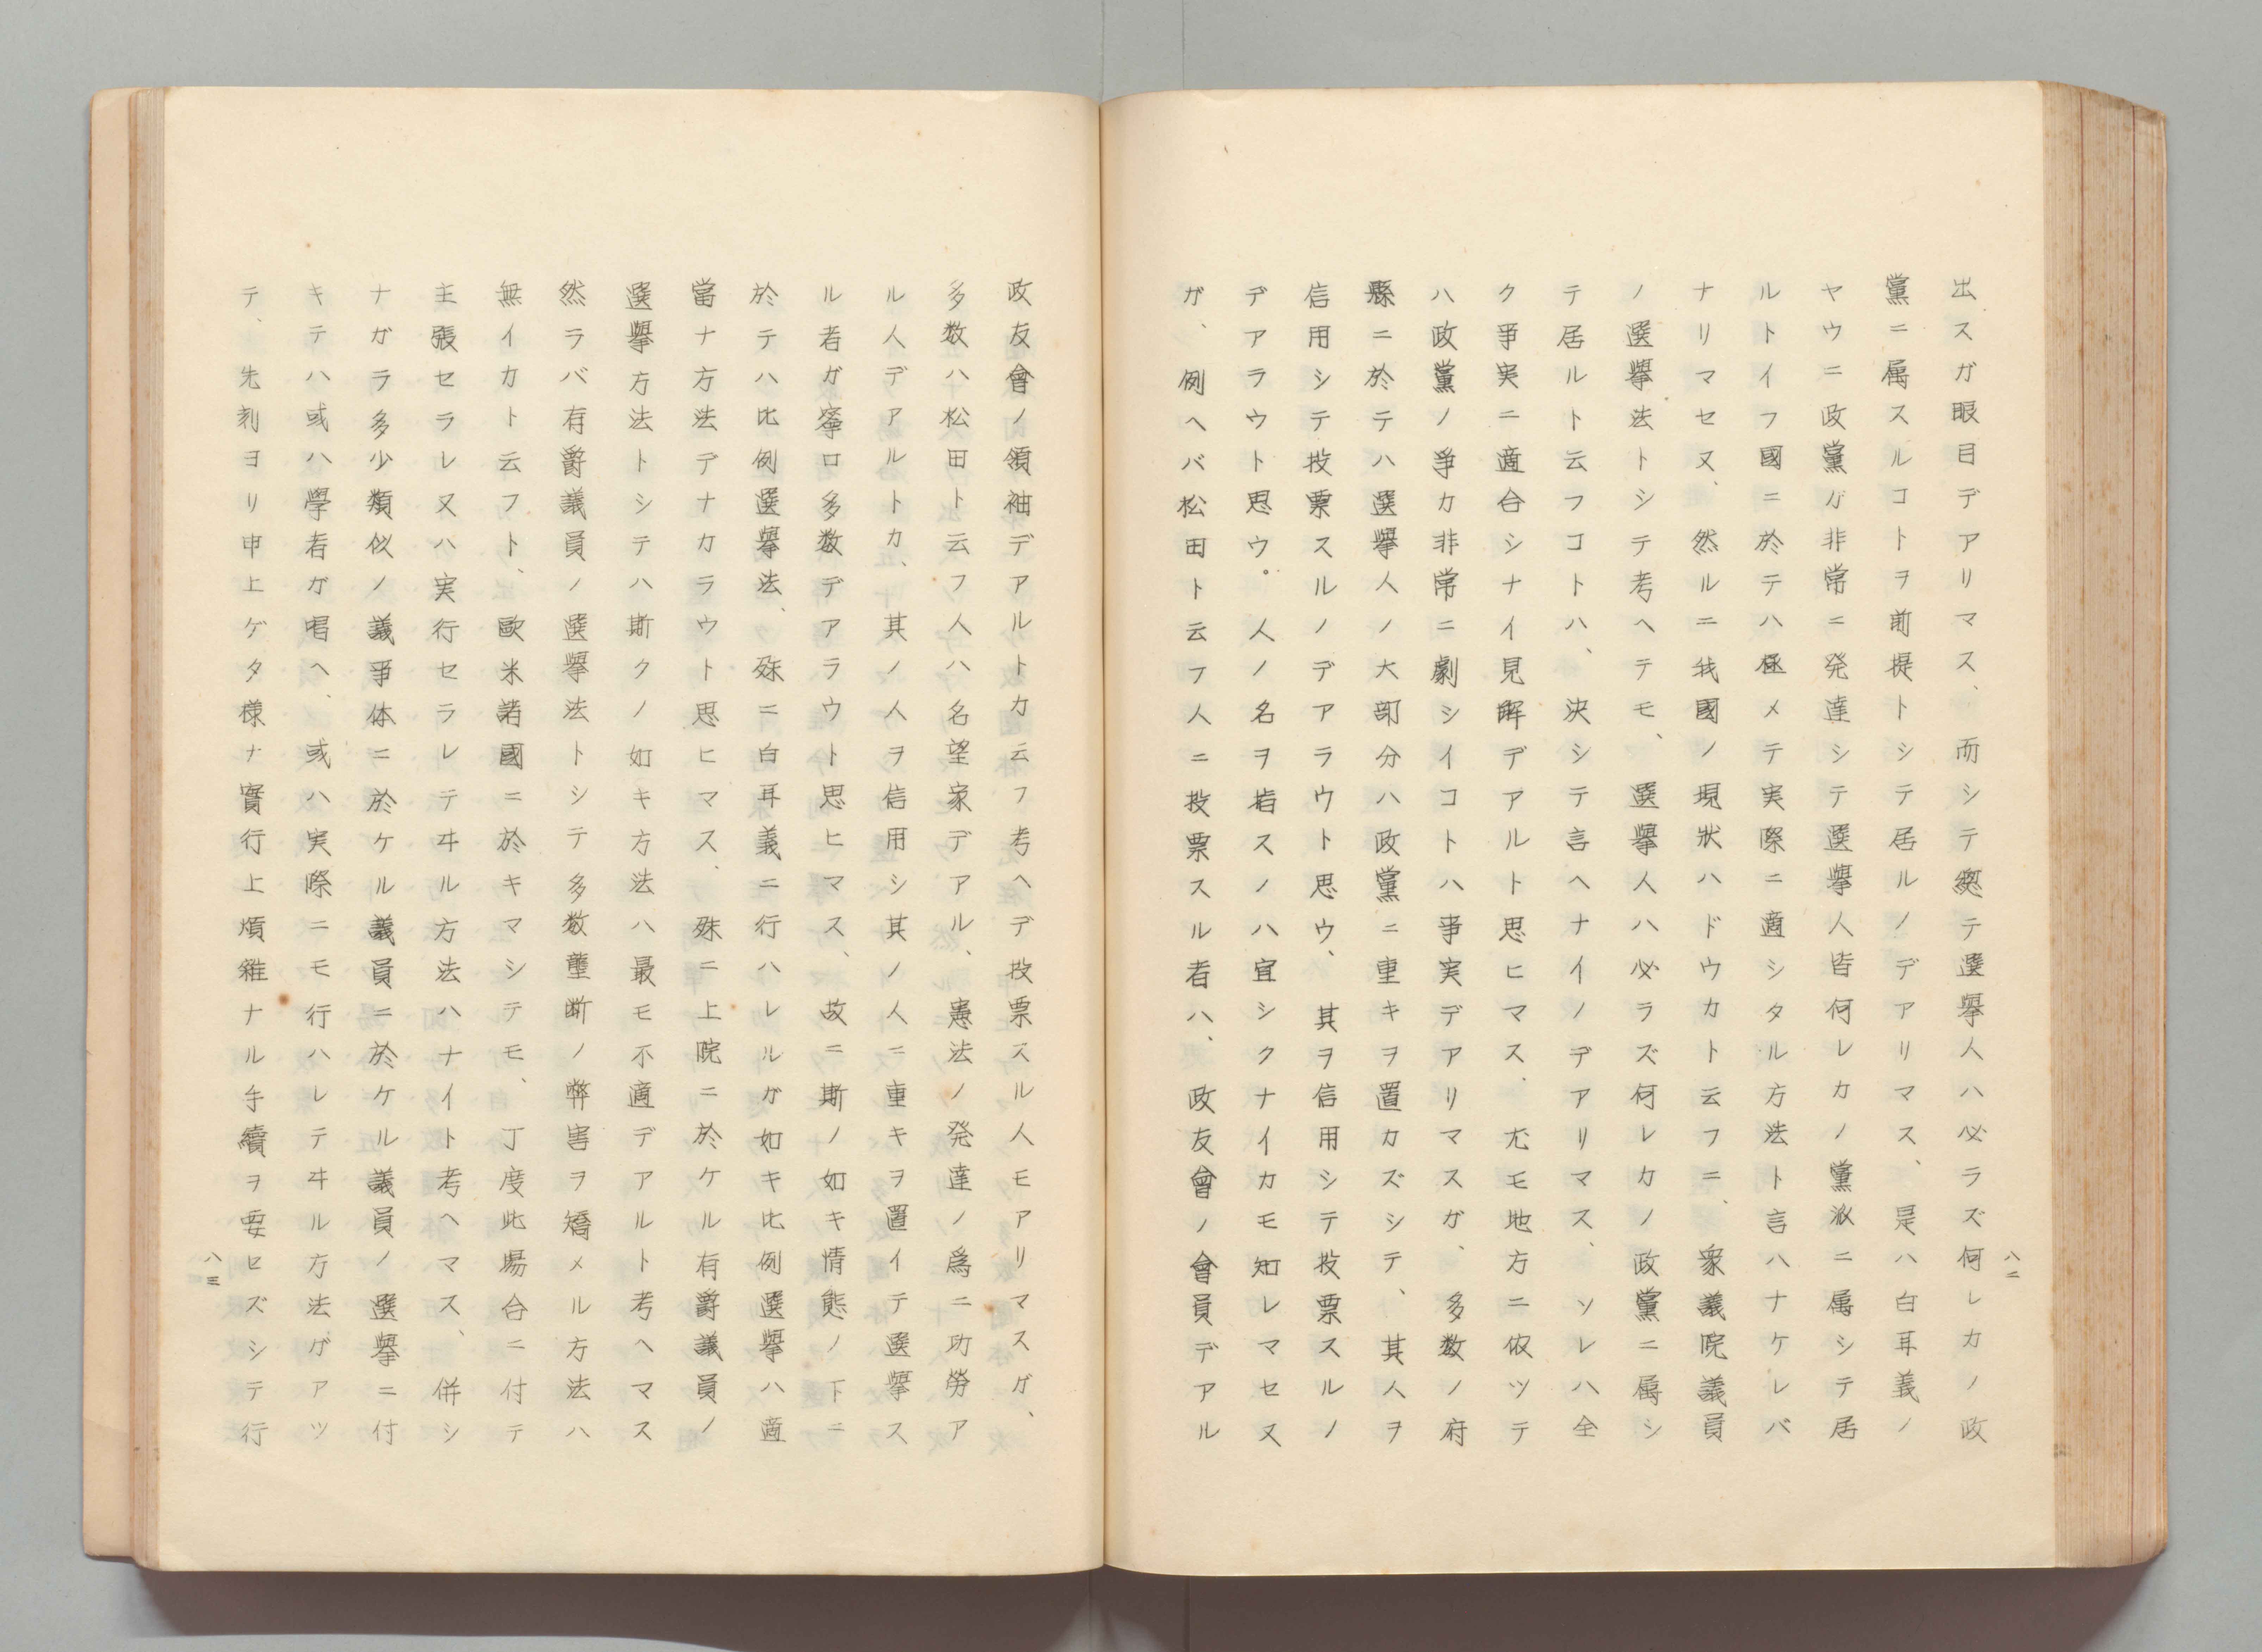 出スガ眼目デアリマス、而シテ總テ選擧人ハ必ラズ何レカノ政
黨ニ属スルコトヲ前提トシテ居ルノデアリマス、是ハ白耳義ノ
ヤウニ政黨ガ非常ニ発達シテ選擧人皆何レカノ黨派ニ属シテ居
ルトイフ國ニ於テハ極メテ実際ニ適シタル方法ト言ハナケレバ
ナリマセヌ、然ルニ我國ノ現狀ハドウカト云フニ、衆議院議員
ノ選擧法トシテ考ヘテモ、選擧人ハ必ラズ何レカノ政黨ニ属シ
テ居ルト云フコトハ、決シテ言ヘナイノデアリマス、ソレハ全
ク事実ニ適合シナイ見解デアルト思ヒマス、尤モ地方ニ依ツテ
ハ政黨ノ爭カ非常ニ劇シイコトハ事実デアリマスガ、多数ノ府
縣ニ於テハ選擧人ノ大部分ハ政黨ニ重キヲ置カズシテ、其人ヲ
信用シテ投票スルノデアラウト思ウ、其ヲ信用シテ投票スルノ
デアラウト思ウ。人ノ名ヲ指スノハ宜シクナイカモ知レマセヌ
ガ、例ヘバ松田ト云フ人ニ投票スル者ハ、政友會ノ會員デアル
八二
政友會ノ領袖デアルトカ云フ考ヘデ投票スル人モアリマスガ、
多数ハ松田ト云フ人ハ名望家デアル、憲法ノ発達ノ爲ニ功勞ア
ル人デアルトカ、其ノ人ヲ信用シ其ノ人ニ重キヲ置イテ選擧ス
ル者ガ寧ロ多数デアラウト思ヒマス、故ニ斯ノ如キ情態ノ下ニ
於テハ比例選擧法、殊ニ白耳義ニ行ハレルガ如キ比例選擧ハ適
當ナ方法デナカラウト思ヒマス、殊ニ上院ニ於ケル有爵議員ノ
選擧方法トシテハ斯クノ如キ方法ハ最モ不適デアルト考ヘマス
然ラバ有爵議員ノ選擧法トシテ多数壟断ノ弊害ヲ矯メル方法ハ
無イカト云フト、歐米諸國ニ於キマシテモ、丁度此場合ニ付テ
主張セラレ又ハ実行セラレテヰル方法ハナイト考ヘマス、併シ
ナガラ多少類似ノ議事体ニ於ケル議員ニ於ケル議員ノ選擧ニ付
キテハ或ハ學者ガ唱ヘ、或ハ実際ニモ行ハレテヰル方法ガアツ
テ、先刻ヨリ申上ゲタ様ナ實行上煩雜ナル手續ヲ要セズシテ行
八三